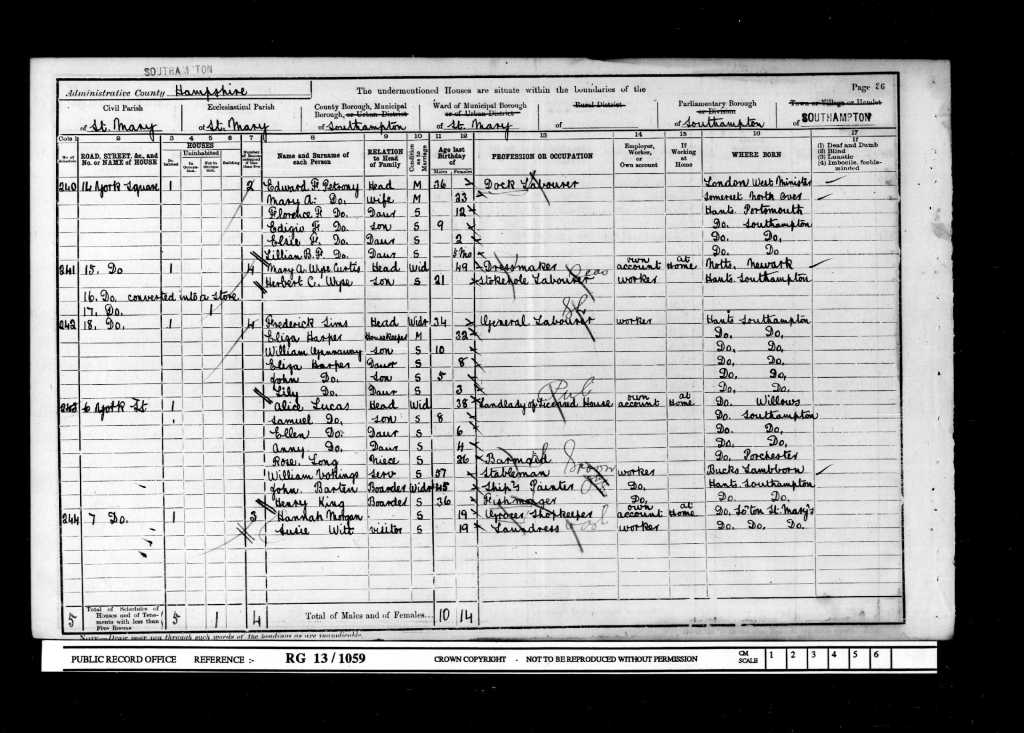 SOUTHAMPTON
Administrative County Hampshire The undermentioned Houses are situate within the boundaries of the Page 26
Civil Parish Ecclesiastical Parish County Borough, Municipal Borough, or Urban District Ward of Municipal Borough or of Urban District Rural District Parliamentary Borough or Division Town or Village or Hamlet
of St. Mary of St. Mary of Southampton of St. Mary of of Southampton of SOUTHAMPTON
Cols. 1 2 3 4 5 6 7 8 9 10 11 12 13 14 15 16 17
No. of Schedule ROAD, STREET, &c., and No. or NAME of HOUSE HOUSES Inhabited Uninhabited In Occupation Not in Occupation Building Name and Surname of each Person RELATION to Head of Family Condition as to Marriage Age last Birthday of Males Females PROFESSION OR OCCUPATION Employer, Worker, or Own account If Working at Home WHERE BORN If (1) Deaf and Dumb (2) Blind (3) Lunatic (4) Imbecile, feeble-minded
240 14 York Square 1 2 Edward F. Head M 36 Dock Labourer London West Minister
Mary A. Do. Wife M 33 Somerset North Over
Florence F. Do. Daur S 12 Hants Portsmouth
F. Do. Son S 9 Do. Southampton
Elsie F. Do. Daur S 2 Do. Do.
Lillian B.F. Do. Daur S Mo Do. Do
241 15. Do 1 4 Mary A. Curtis Head Wid 49 Dressmaker own account at Home Notts. Newark
Herbert C. Son S 21 Stokehole Labourer worker Hants Southampton
16. Do. converted into a store
17. Do. 1
242 18. Do. 1 4 Frederick Sims Head Widr 34 General Labourer worker Hants Southampton
Eliza Harper Housekeeper M 32 Do. Do.
William son S 10 Do. Do.
Eliza Harper Daur S 8 Do. Do.
John Do. Son S 5 Do. Do.
Lily Do. Daur S 3 Do. Do.
243 6 York St 1 Alice Lucas Head Wid 38 Landlady of Licensed House own account at Home Do. Willows
Samuel Do. Son S 8 Do. Southampton
Ellen Do. Daur S 6 Do. Do.
Anny Do. Daur S 4 Do. Do.
Rose Long Niece S 26 Barmaid Do. Porchester
William Serv S 57 Stableman worker Bucks Lambborn
John Barten Boarder Widr 45 Ship's Painter Do. Hants Southampton
Henry King Boarder S 36 Fishmonger Do. Do. Do.
244 7 Do. 1 3 Hannah Morgan S 19 Grocer Shopkeeper own account at Home Do. So'ton St. Mary's
Susie Witt visitor S 19 Laundress worker Do. Do. Do.
5 Total of Schedules of Houses and of Tenements with less than Five Rooms 5 1 4 Total of Males and of Females... 10 14
NOTE—Draw your pen through such words of the headings as are inapplicable.
PUBLIC RECORD OFFICE REFERENCE :- RG 13/1059 CROWN COPYRIGHT - NOT TO BE REPRODUCED WITHOUT PERMISSION CM SCALE 1 2 3 4 5 6